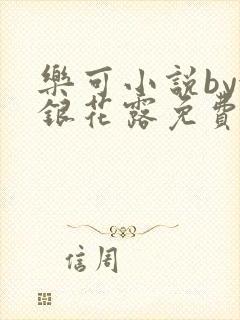 樂可小說by
銀花露免費
信周